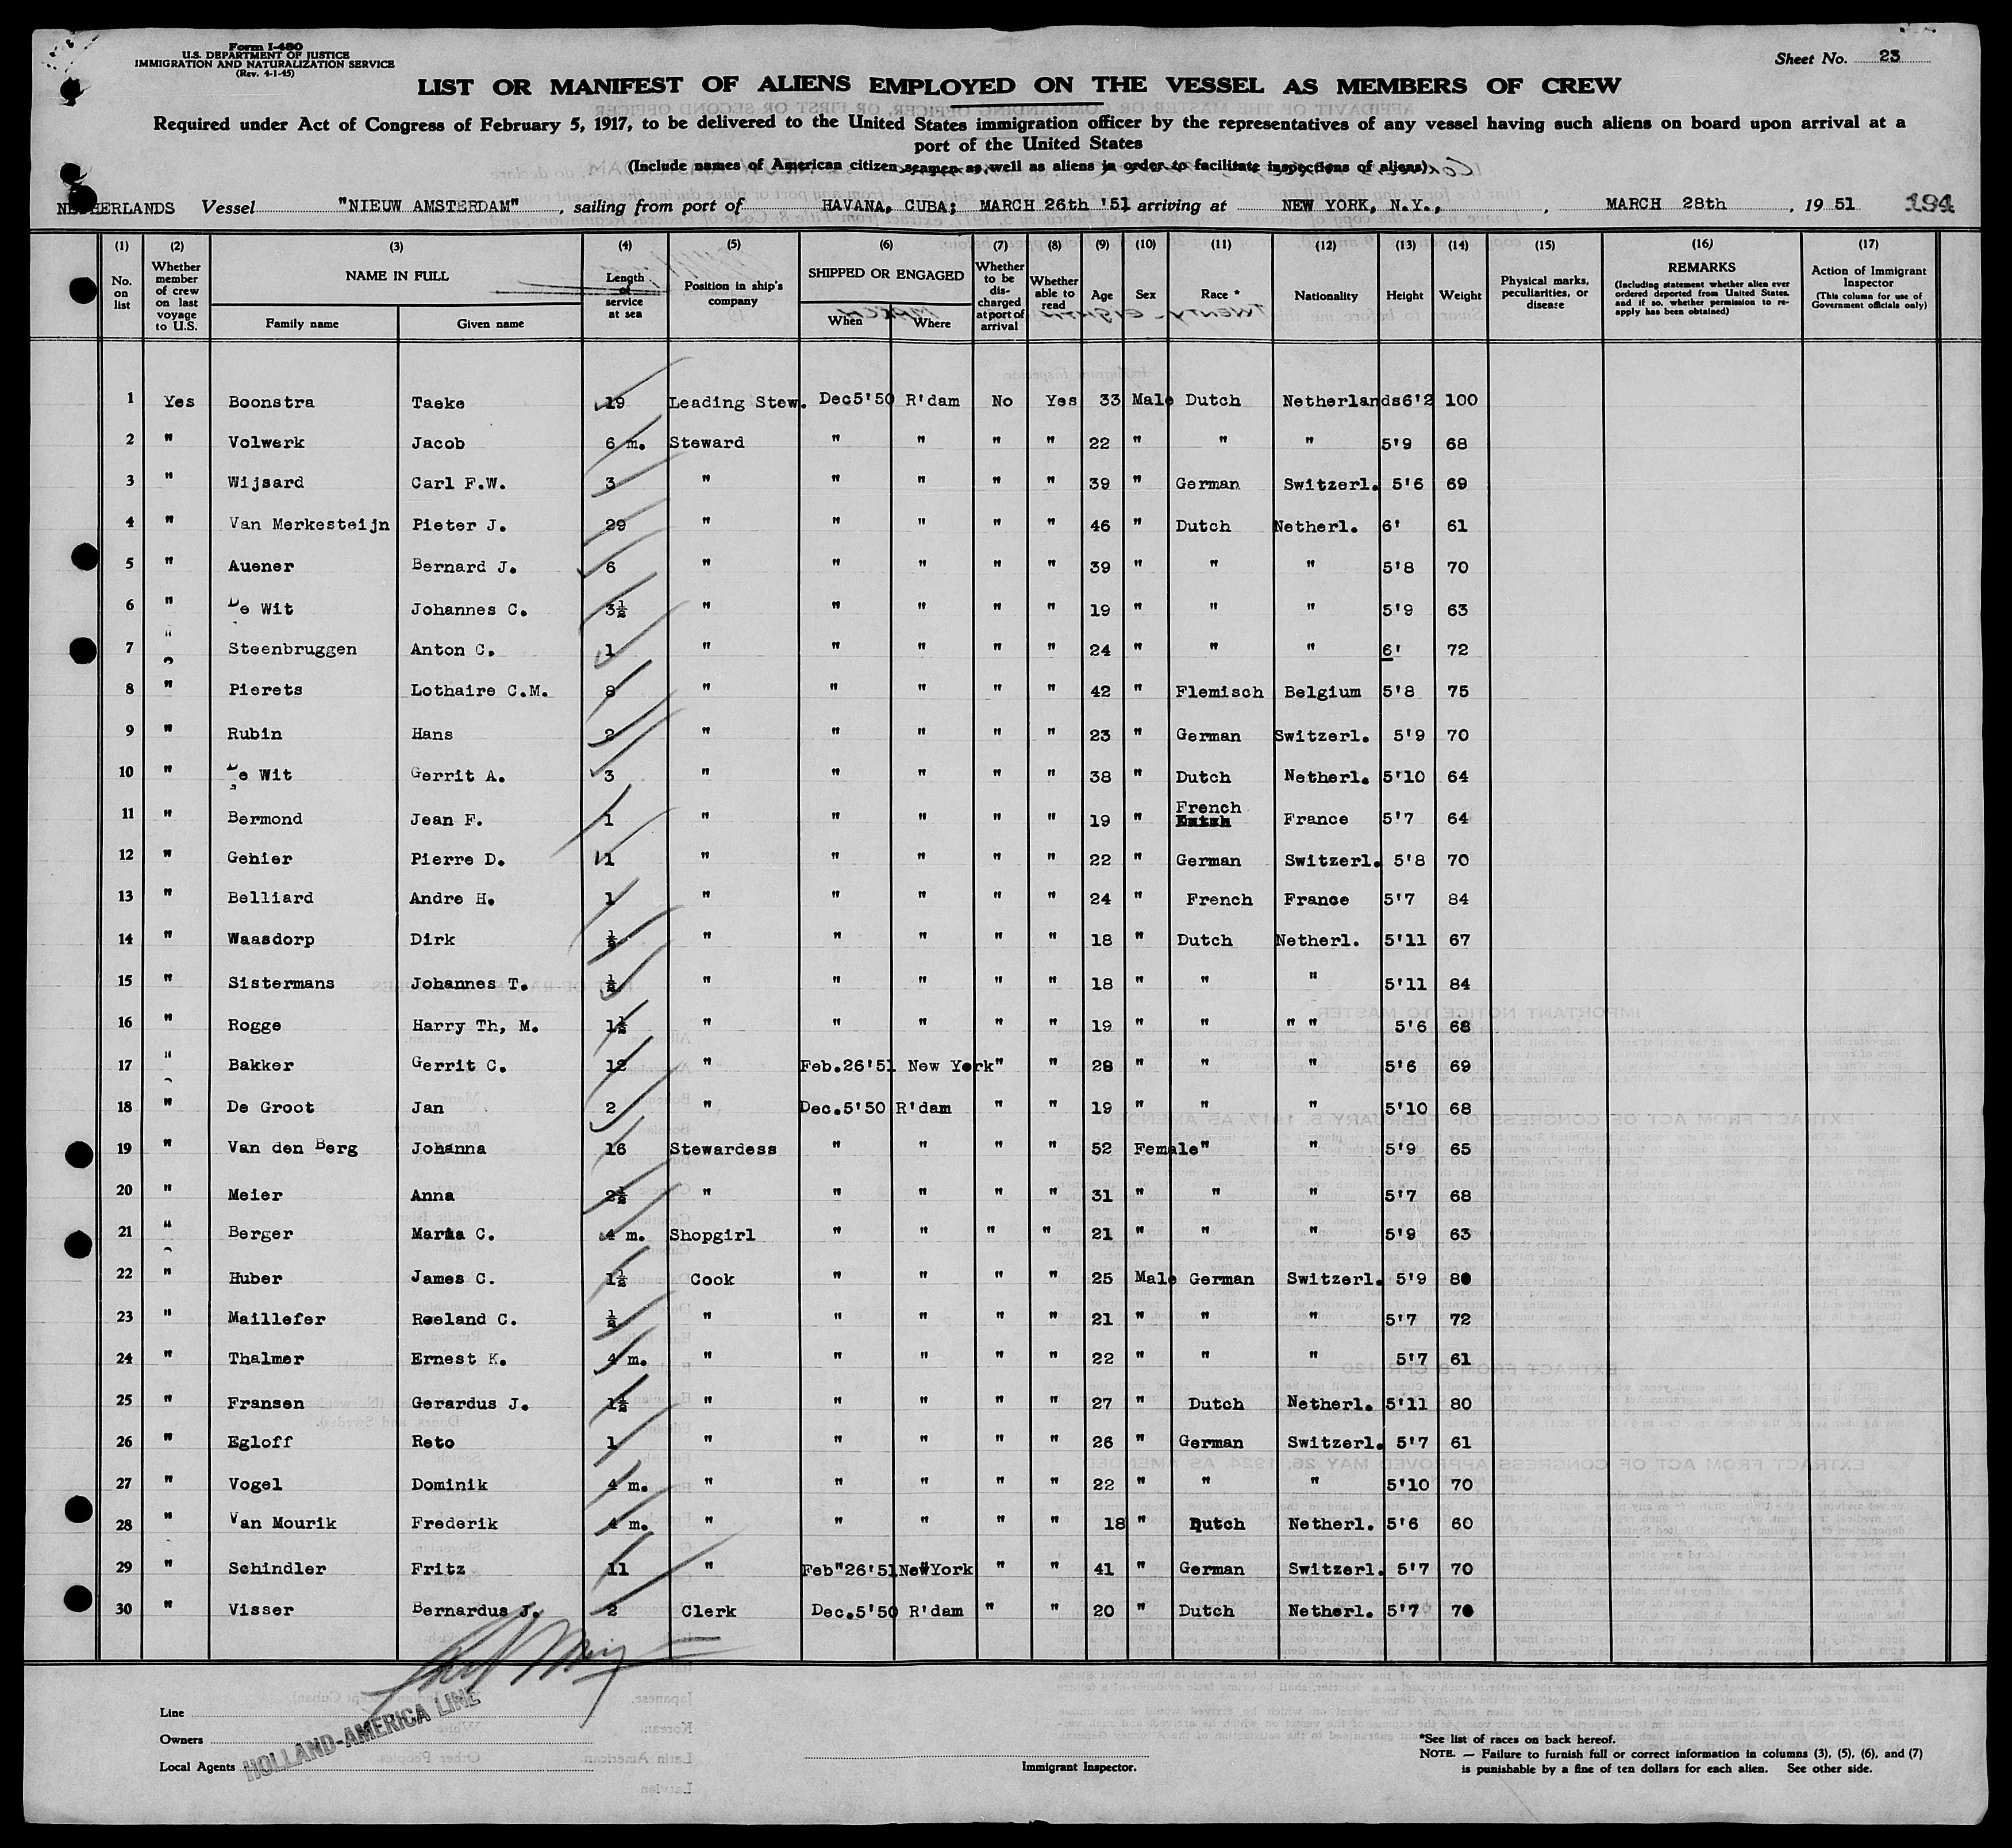 Form I-480
U.S. DEPARTMENT OF JUSTICE
IMMIGRATION AND NATURALIZATION SERVICE
(Rev. 4-1-45)
Sheet No. 23
LIST OR MANIFEST OF ALIENS EMPLOYED ON THE VESSEL AS MEMBERS OF CREW
Required under Act of Congress of February 5, 1917, to be delivered to the United States immigration officer by the representatives of any vessel having such aliens on board upon arrival at a
port of the United States
(Include names of American citizen seamen as well as aliens in order to facilitate inspections of aliens)
NETHERLANDS Vessel "NIEUW AMSTERDAM" , sailing from port of HAVANA, CUBA; MARCH 26th '51 arriving at NEW YORK, N.Y., , MARCH 28th , 19 51 194
(1) (2) (3) (4) (5) (6) (7) (8) (9) (10) (11) (12) (13) (14) (15) (16) (17)
No. on list
Whether member of crew on last voyage to U.S.
NAME IN FULL
Family name
Given name
Length of service at sea
Position in ship's company
SHIPPED OR ENGAGED
When
Where
Whether to be discharged at port of arrival
Whether able to read
Age
Sex
Race *
Nationality
Height
Weight
Physical marks, peculiarities, or disease
REMARKS
(Including statement whether alien ever ordered deported from United States, and if so, whether permission to reapply has been obtained)
Action of Immigrant Inspector
(This column for use of Government officials only)
1 Yes Boonstra Taeke 19 Leading Stew. Dec5'50 R'dam No Yes 33 Male Dutch Netherlands 6'2 100
2 " Volwerk Jacob 6 m. Steward " " " " 22 " " " 5'9 68
3 " Wijsard Carl F.W. 3 " " " " " 39 " German Switzerl. 5'6 69
4 " Van Merkesteijn Pieter J. 29 " " " " " 46 " Dutch Netherl. 6' 61
5 " Auener Bernard J. 6 " " " " " 39 " " " 5'8 70
6 " De Wit Johannes C. 3½ " " " " " 19 " " " 5'9 63
7 " Steenbruggen Anton C. 1 " " " " " 24 " " " 6' 72
8 " Pierets Lothaire C.M. 8 " " " " " 42 " Flemisch Belgium 5'8 75
9 " Rubin Hans 2 " " " " " 23 " German Switzerl. 5'9 70
10 " De Wit Gerrit A. 3 " " " " " 38 " Dutch Netherl. 5'10 64
11 " Bermond Jean F. 1 " " " " " 19 " French France 5'7 64
12 " Gehier Pierre D. 1 " " " " " 22 " German Switzerl. 5'8 70
13 " Belliard Andre H. 1 " " " " " 24 " French France 5'7 84
14 " Waasdorp Dirk ½ " " " " " 18 " Dutch Netherl. 5'11 67
15 " Sistermans Johannes T. ½ " " " " " 18 " " " 5'11 84
16 " Rogge Harry Th, M. 1½ " " " " " 19 " " " " 5'6 68
17 " Bakker Gerrit C. 12 " Feb.26'51 New York " " 28 " " " 5'6 69
18 " De Groot Jan 2 " Dec.5'50 R'dam " " 19 " " " 5'10 68
19 " Van den Berg Johanna 16 Stewardess " " " " 52 Female " " 5'9 65
20 " Meier Anna 2½ " " " " " 31 " " " 5'7 68
21 " Berger Maria C. 4 m. Shopgirl " " " " 21 " " " 5'9 63
22 " Huber James C. 1½ Cook " " " " 25 Male German Switzerl. 5'9 80
23 " Maillefer Roeland C. ½ " " " " " 21 " " " 5'7 72
24 " Thalmer Ernest K. 4 m. " " " " " 22 " " " 5'7 61
25 " Fransen Gerardus J. 1½ " " " " " 27 " Dutch Netherl. 5'11 80
26 " Egloff Reto 1 " " " " " 26 " German Switzerl. 5'7 61
27 " Vogel Dominik 4 m. " " " " " 22 " " " 5'10 70
28 " Van Mourik Frederik 4 m. " " " " " 18 " Dutch Netherl. 5'6 60
29 " Schindler Fritz 11 " Feb"26'51 New York " " 41 " German Switzerl. 5'7 70
30 " Visser Bernardus J. 2 Clerk Dec.5'50 R'dam " " 20 " Dutch Netherl. 5'7 70
Line
Owners
Local Agents
HOLLAND-AMERICA LINE
Immigrant Inspector.
*See list of races on back hereof.
NOTE. — Failure to furnish full or correct information in columns (3), (5), (6), and (7)
is punishable by a fine of ten dollars for each alien. See other side.